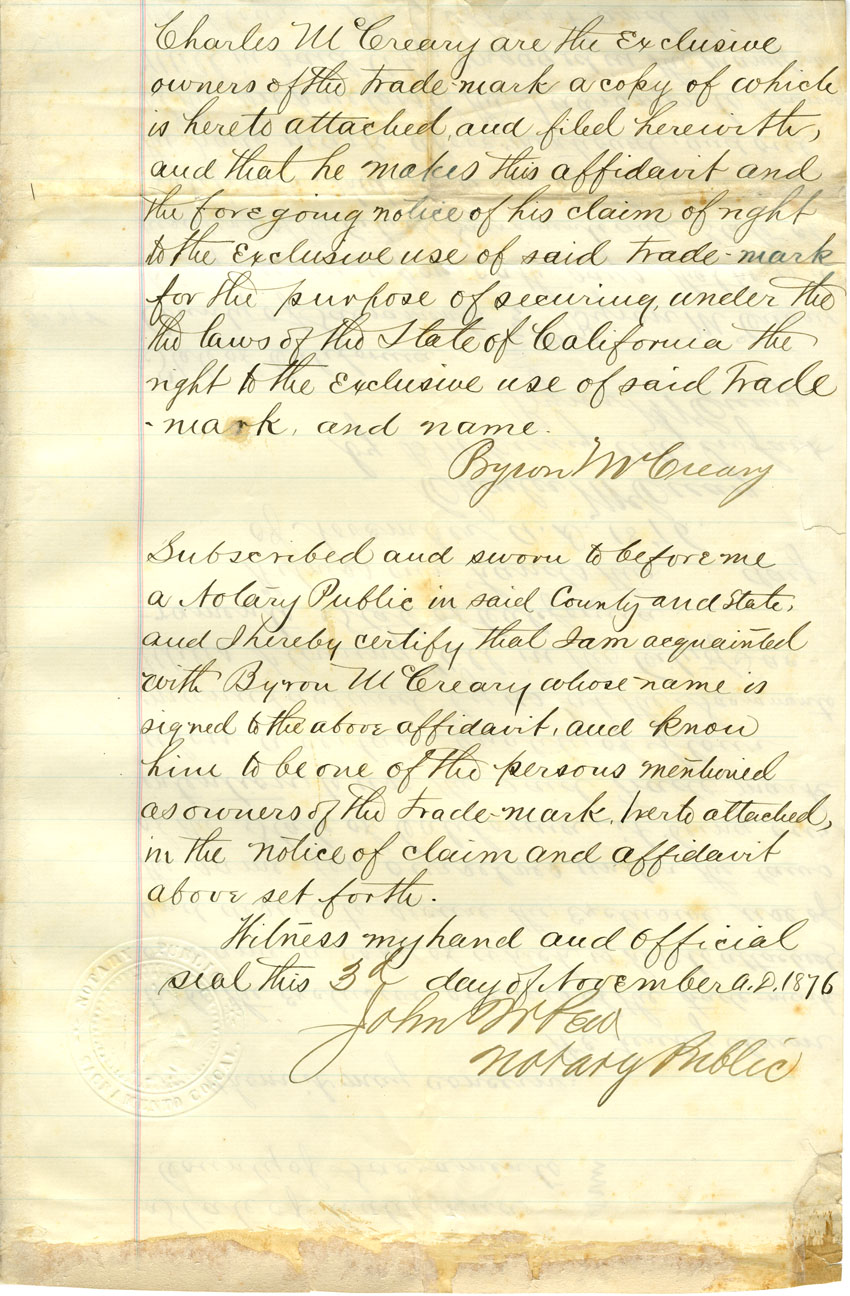 Charles McCreary are the Exclusive
owners of the trade-mark a copy of which
is hereto attached, and filed herewith,
and that he makes this affidavit and
the foregoing notice of his claim of right
to the Exclusive use of said trade-mark
for the purpose of securing, under the
the laws of the State of California the
right to the Exclusive use of said Trade
-mark, and name.
Byron McCreary
Subscribed and sworn to before me
a Notary Public in said County and State,
and I hereby certify that I am acquainted
with Byron McCreary whose name is
signed to the above affidavit, and know
him to be one of the persons mentioned
as owners of the trade-mark, herto attached,
in the notice of claim and affidavit
above set forth.
Witness my hand and official
seal this 3d day of November A.D. 1876
John
Notary Public
NOTARY PUBLIC
SACRAMENTO COUNTY